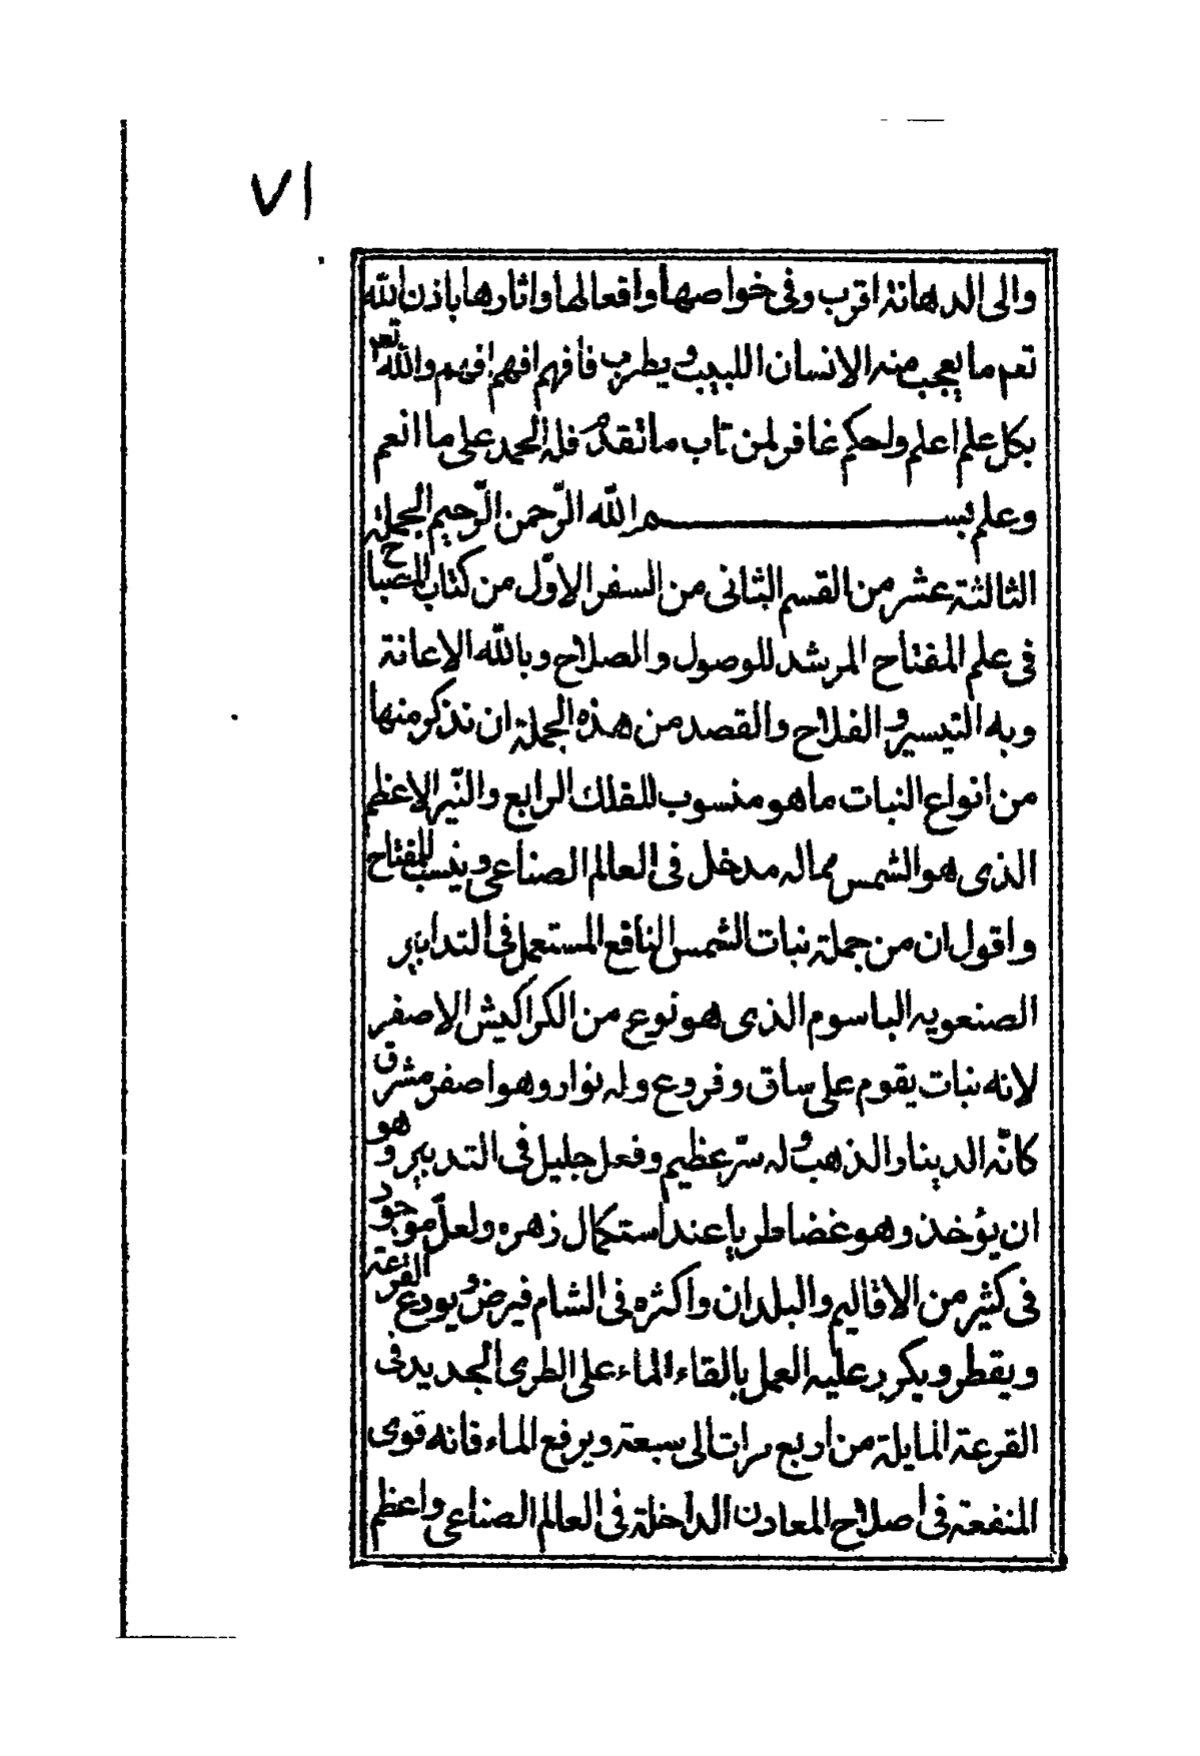 ٧١
والى الدهانة اقرب وفى خواصها وافعالها واثارها باذن الله
تعم ما يعجب منه الانسان اللبيب ويطرب فافهم افهم افهم والله تعم
بكل علم اعلم ولحكم غافر لمن تاب ما تقدم فله الحمد على ما انعم
وعلم بســـــــم الله الرّحمن الرّحيم الجملة
الثالثة عشر من القسم الثانى من السفر الاوّل من كتاب المصباح
فى علم المفتاح المرشد للوصول والصلاح وبالله الاعانة
وبه التيسير والفلاح والقصد من هذه الجملة ان نذكر منها
من انواع النبات ما هو منسوب للفلك الرابع والنّير الاعظم
الذى هو الشمس مما له مدخل فى العالم الصناعى وينسب للمفتاح
واقول ان من جملة نبات الشمس النافع المستعمل فى التدابير
الصنعويه الباسوم الذى هو نوع من الكراكيش الاصفر
لانه نبات يقوم على ساق وفروع وله نوار وهو اصفر مشرق
كانّه الدينار الذهب وله سرّ عظيم وفعل جليل فى التدبير وهو
ان يؤخذ وهو غضا طريا عند استكمال زهره ولعلّ موجود
فى كثير من الاقاليم والبلدان واكثره فى الشام فيرض ويودع القرعة
ويقطر ويكرر عليه العمل بالقاء الماء على الطرى الجديد فى
القرعة المايلة من اربع مرات الى سبعة ويرفع الماء فانه قوى
المنفعة فى اصلاح المعادن الداخلة فى العالم الصناعى واعظم